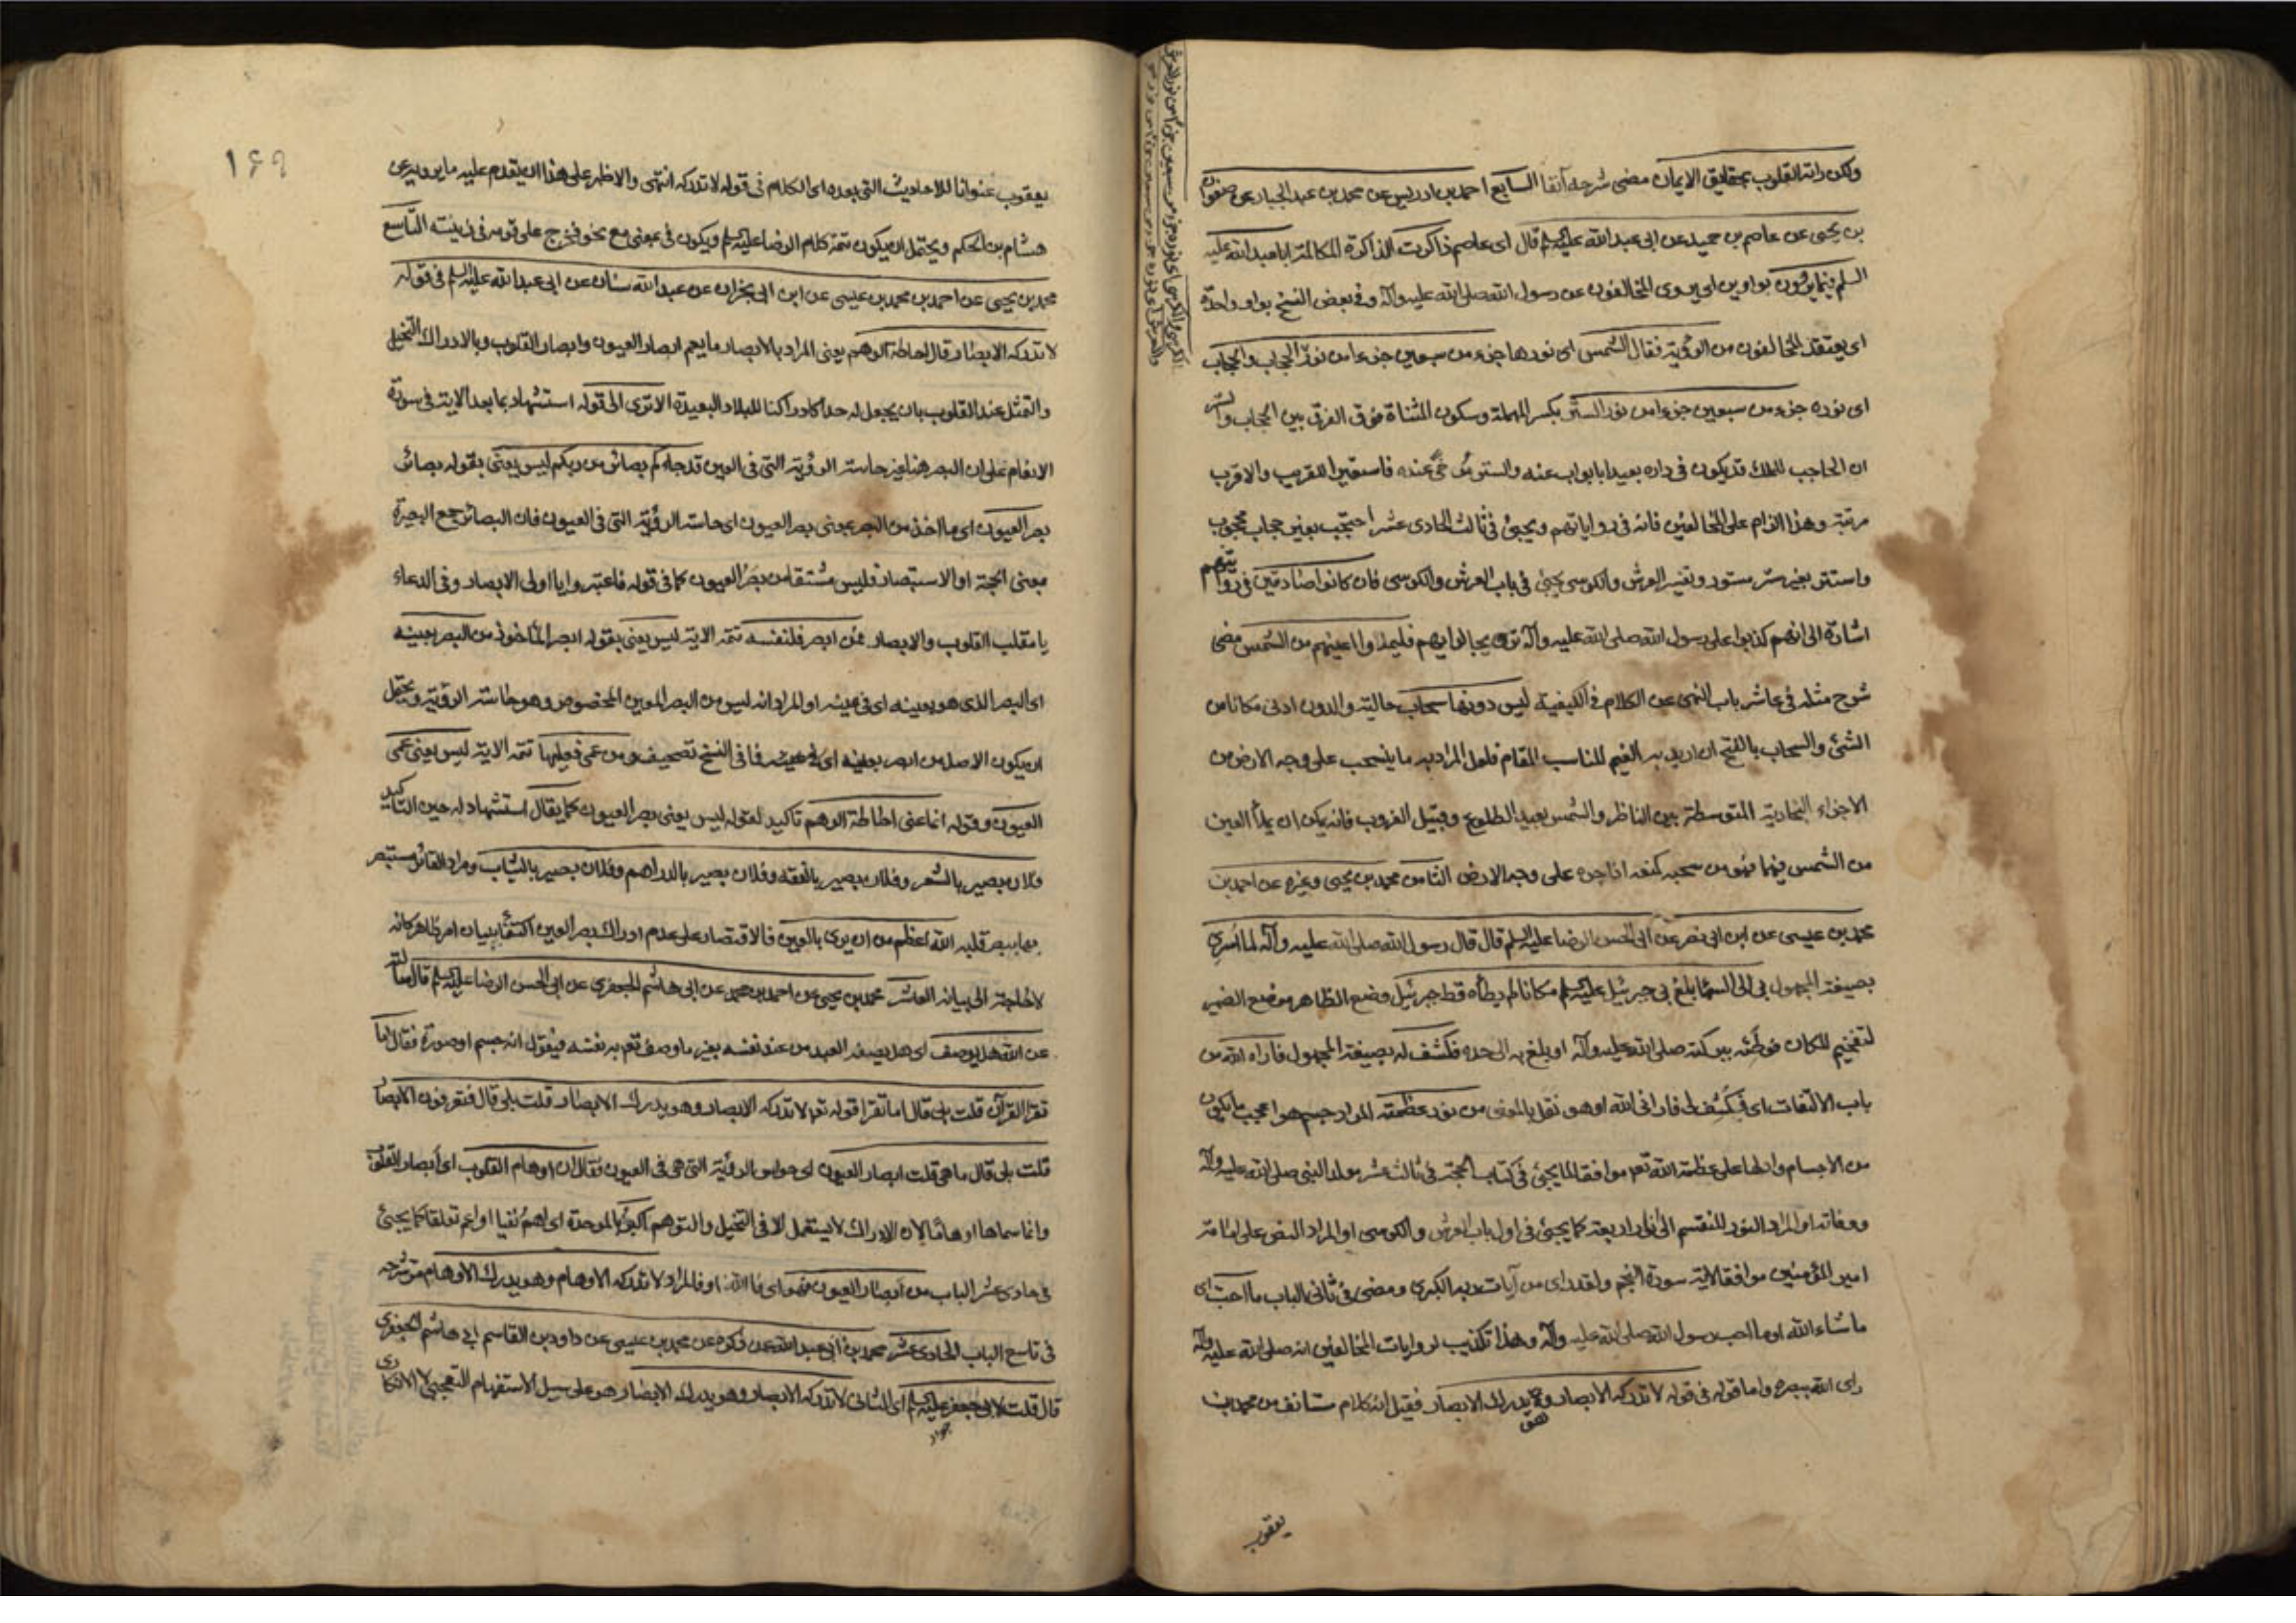 ولكن راته القلوب بحقايق الايمان مضى شرحه آنفا السابع احمد بن ادريس عن محمد بن عبد الجبار عن صفوان
بن يحيى عن عاصم بن حميد عن ابى عبد الله عليه السلم قال اى عاصم ذاكرت المذاكرة المكالمة ابا عبد الله عليه
السلم فيما يروون بواوين اى يروى المخالفون عن رسول الله صلى الله عليه وآله وفى بعض النسخ بواو واحدة
اى يعتقد المخالفون من الرؤية فقال الشمس اى نورها جزء من سبعين جزءا من نور الحجاب والحجاب
اى نوره جزء من سبعين جزءا من نور الستر بكسر المهملة وسكون المثناة فوق الفرق بين الحجاب والستر
ان الحاجب للملك قد يكون فى داره بعيدا بابواب عنه والستر عنده فاستعير للقريب والاقرب
مرتبة وهذا الزام على المخالفين فانه فى رواياتهم ويجيئ فى ثالث الحادى عشر احتجب بغير حجاب محجوب
واستتر بغير ستر مستور وتفسير العرش والكرسى يجيئ فى باب العرش والكرسى فان كانوا صادقين فى روايتهم
اشارة الى انهم كذبوا على رسول الله صلى الله عليه وآله فليملأوا اعينهم من الشمس مضى
شرح مثله فى عاشر باب النهى عن الكلام فى الكيفية ليس دونها سحاب حالية والدون ادنى مكانا من
الشئ والسحاب بالفتح ان اريد به الغيم المناسب للمقام فلعل المراد به ما ينسحب على وجه الارض من
الاجزاء البخارية المتوسطة بين الناظر والشمس بعيد الطلوع وقبيل الغروب فانه يمكن ان يملأ العين
من الشمس فيهما فهو من سحبه كمنعه اذا جره على وجه الارض الثامن محمد بن يحيى وغيره عن احمد بن
محمد بن عيسى عن ابن ابى نصر عن ابى الحسن الرضا عليه السلم قال قال رسول الله صلى الله عليه وآله لما اسرى
بصيغة المجهول بى الى السماء بلغ بى جبرئيل عليه السلم مكانا لم يطأه قط جبرئيل وضع الظاهر موضع الضمير
لتفخيم المكان فوطئه ببركته صلى الله عليه وآله او بلغ به الى حده فكشف له بصيغة المجهول فاراه الله من
باب الالتفات اى فكشف لى فارانى الله او هو نقل بالمعنى من نور عظمته المراد جسم هو اعجب ما يكون
من الاجسام وادلها على عظمة الله تعم موافقا لما يجيئ فى كتاب الحجة فى ثالث عشر مولد النبى صلى الله عليه وآله
ووفاته او المراد النور المنقسم الى انوار اربعة كما يجيئ فى اول باب العرش والكرسى او المراد النص على امامة
امير المؤمنين موافقا لاية سورة النجم ولقد راى من آيات ربه الكبرى ومضى فى ثانى الباب ما احب اى
ما شاء الله او ما احب رسول الله صلى الله عليه وآله وهذا تكذيب لروايات المخالفين انه صلى الله عليه وآله
راى الله ببصره واما قوله فى قوله لا تدركه الابصار وهو يدرك الابصار فقيل انه كلام مستانف من محمد بن
يعقوب
١٤٩
يعقوب عنوانا للاحاديث التى بعده اى الكلام فى قوله لا تدركه انتهى والاظهر على هذا ان يقدم عليه ما يرويه عن
هشام بن الحكم ويحتمل ان يكون تتمة كلام الرضا عليه السلم ويكون فى بمعنى مع نحو فخرج على قومه فى زينته التاسع
محمد بن يحيى عن احمد بن محمد بن عيسى عن ابن ابى نجران عن عبد الله سنان عن ابى عبد الله عليه السلم فى قوله
لا تدركه الابصار قال احاطة الوهم يعنى المراد بالابصار ما يعم ابصار العيون وابصار القلوب وبالادراك التخيل
والتمثل عند القلوب بان يجعل له حدا كادراكنا للبلاد البعيدة الا ترى الى قوله استشهاد بما بعد الاية فى سورة
الانعام على ان البصر هنا غير حاسة الرؤية التى فى العين قد جاءكم بصائر من ربكم ليس يعنى بقوله بصائر
بصر العيون اى ما اخذ من البصر بمعنى بصر العيون اى حاسة الرؤية التى فى العيون فان البصائر جمع البصيرة
بمعنى الحجة او الاستبصار فليس مشتقا من بصر العيون كما فى قوله فاعتبروا يا اولى الابصار وفى الدعاء
يا مقلب القلوب والابصار فمن ابصر فلنفسه تتمة الاية ليس يعنى بقوله ابصر الماخوذ من البصر بعينه
اى البصر الذى هو بعينه اى فى عينه او المراد انه ليس من البصر المعين المخصوص وهو حاسة الرؤية ويحتمل
ان يكون الاصل من ابصر بعينه اى فى عينه فما فى النسخ تصحيف ومن عمى فعليها تتمة الاية ليس يعنى عمى
العيون وقوله انما عنى احاطة الوهم تاكيد لقوله ليس يعنى بصر العيون كما يقال استشهاد له حين التاكيد
فلان بصير بالشعر وفلان بصير بالفقه وفلان بصير بالدراهم وفلان بصير بالثياب ومراد القائل مستبصر
بها ببصر قلبه الله اعظم من ان يرى بالعين فالاقتصار على عدم ادراك بصر العين اكتفاء ببيان امر ظاهر كانه
لا حاجة الى بيانه العاشر محمد بن يحيى عن احمد بن محمد عن ابى هاشم الجعفرى عن ابى الحسن الرضا عليه السلم قال سالته
عن الله هل يوصف اى هل يصفه العبد من عند نفسه بغير ما وصف تعم به نفسه فيقول انه جسم او صورة فقال اما
تقرأ القرآن قلت بلى قال اما تقرا قوله تعم لا تدركه الابصار وهو يدرك الابصار قلت بلى قال فتعرفون الابصار
قلت بلى قال ما هى قلت ابصار العيون اى حواس الرؤية التى هى فى العيون فقال ان اوهام القلوب اى ابصار القلوب
وانما سماها اوهاما لان الادراك لا يستعمل الا فى التخيل والتوهم اكبر بالموحدة اى اهم نفيا او اعم تعلقا كما يجيئ
فى حادى عشر الباب من ابصار العيون فهو اى فالله او فالمراد لا تدركه الاوهام وهو يدرك الاوهام مر شرحه
فى تاسع الباب الحادى عشر محمد بن ابى عبد الله عمن ذكره عن محمد بن عيسى عن داود بن القاسم ابى هاشم الجعفرى
قال قلت لابى جعفر عليه السلم اى الثانى لا تدركه الابصار وهو يدرك الابصار هو على سبيل الاستفهام التعجبى لا الانكارى
جواد